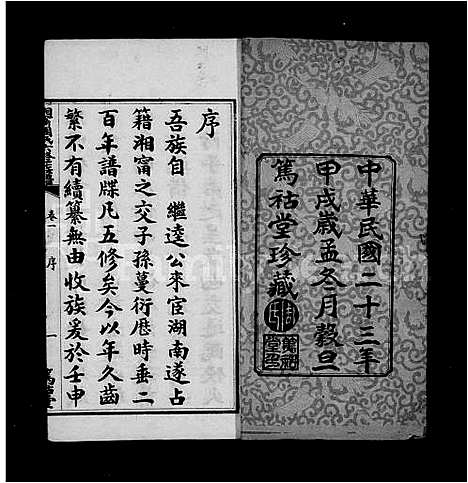 中華民國二十三年
甲戌歲孟冬月穀旦
篤祜堂珍藏
序
吾族自 繼逵公來宦湖南遂占
籍湘甯之交子孫蔓衍歷時垂二
百年譜牒凡五修矣今以年久齒
繁不有續纂無由收族爰於壬申
卷一 序 一